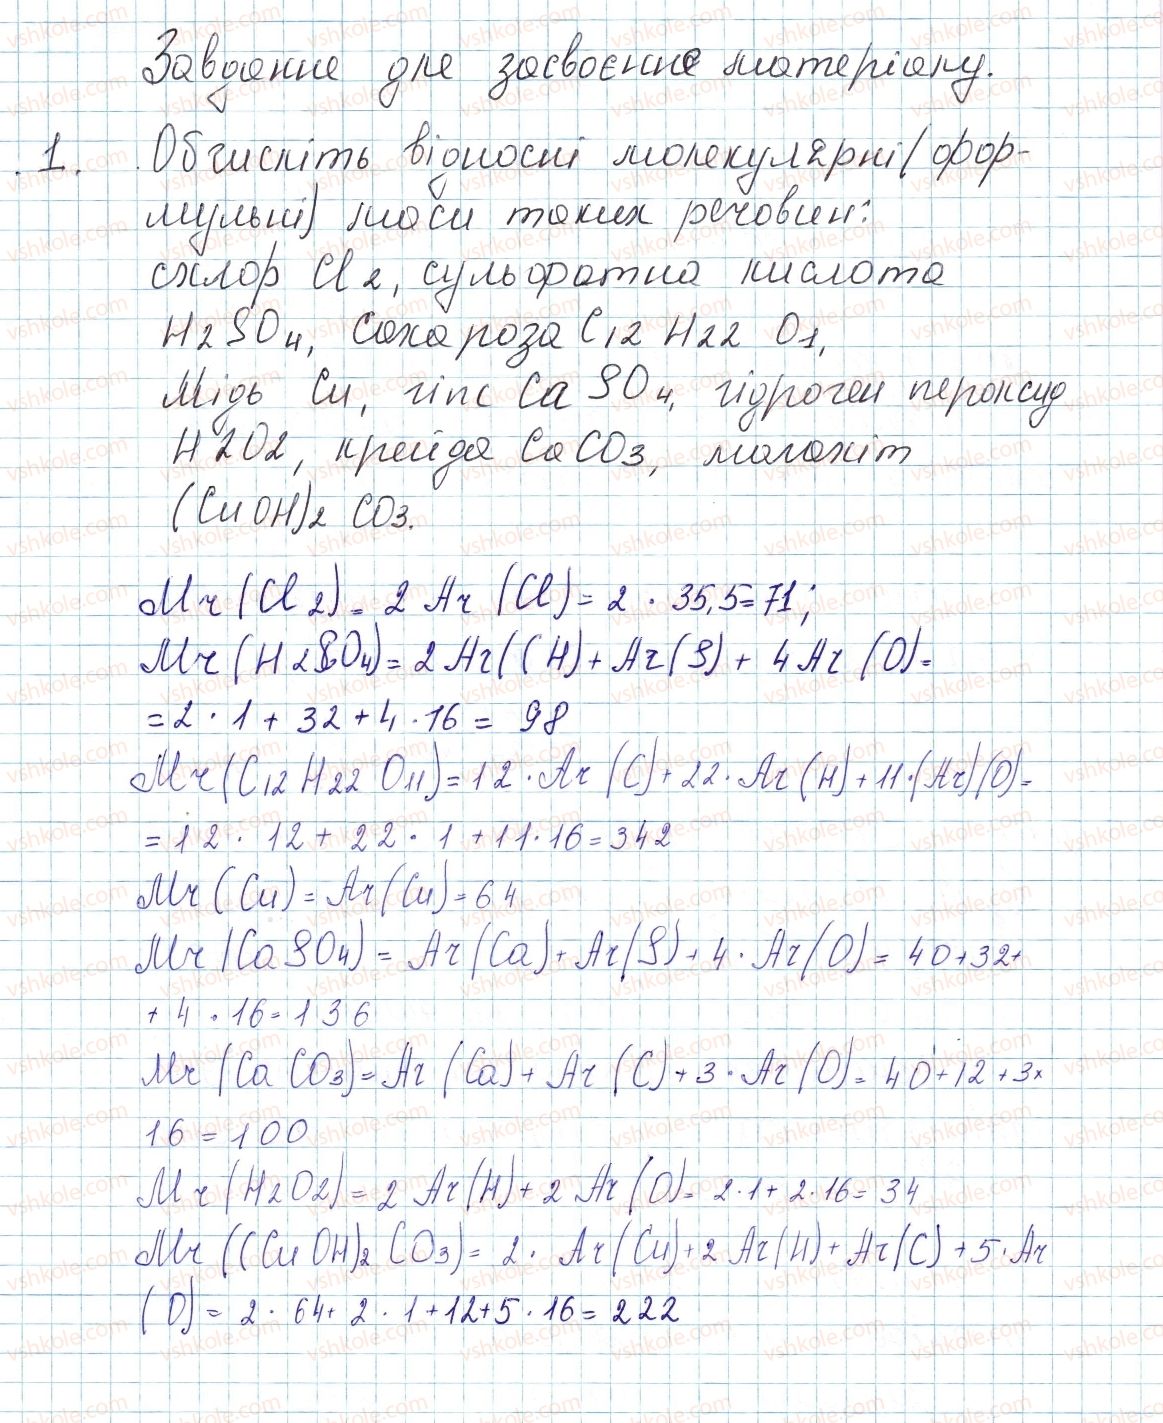 Завдання для засвоєння матеріалу.
1. Обчисліть відносні молекулярні (фор-
мульні) маси таких речовин:
схлор Cl2, сульфатна кислота
H2SO4, Сахароза C12 H22 O1,
Мідь Cu, гіпс CaSO4, гідроген пероксид
H2O2, крейда CaCO3, малахіт
(CuOH)2 CO3.
Mr(Cl2) = 2 Ar (Cl) = 2 · 35,5 = 71;
Mr (H2SO4) = 2 Ar((H) + Ar(S) + 4 Ar (O) =
= 2 · 1 + 32 + 4 · 16 = 98
Mr (C12 H22 O11) = 12 · Ar (C) + 22 · Ar (H) + 11 · (Ar) (O) =
= 12 · 12 + 22 · 1 + 11 · 16 = 342
Mr (Cu) = Ar (Cu) = 64
Mr (CaSO4) = Ar (Ca) + Ar(S) + 4 · Ar (O) = 40 + 32 +
+ 4 · 16 = 136
Mr (CaCO3) = Ar (Ca) + Ar (C) + 3 · Ar (O) = 40 + 12 + 3 ×
16 = 100
Mr (H2O2) = 2 Ar(H) + 2 Ar (O) = 2 · 1 + 2 · 16 = 34
Mr ((CuOH)2 CO3) = 2 · Ar (Cu) + 2 Ar (H) + Ar (C) + 5 · Ar
(O) = 2 · 64 + 2 · 1 + 12 + 5 · 16 = 222
vshkole.com